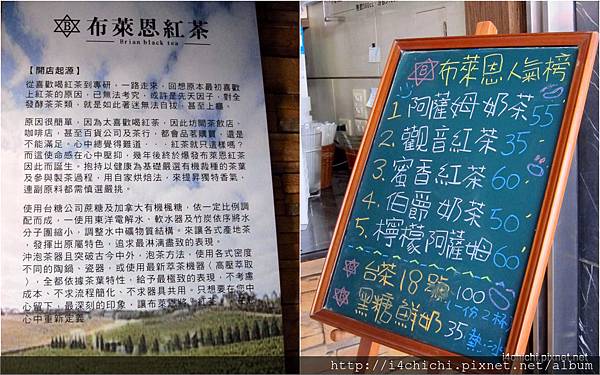 布萊恩紅茶
Brian black tea
【開店起源】
從喜歡喝紅茶到專研，一路走來，回想原本最初喜歡
上紅茶的原因，已無法考究，或許是先天因子，對全
發酵茶茶類，就是如此著迷無法自拔，甚至上癮。
原因很簡單，因為太喜歡喝紅茶，因此坊間茶飲店、
咖啡店，甚至百貨公司及茶行，都會品茗購買，還是
不能滿足。心中總覺得難道．．．紅茶就只這樣嗎？
而這使命感在心中壓抑，幾年後終於爆發布萊恩紅茶
因此而誕生。抱持以健康為基礎嚴選有機栽種的茶葉
及參與製茶過程，用自家烘焙法，來提昇獨特香氣，
連副原料都需慎選嚴挑。
使用台糖公司蔗糖及加拿大有機楓糖，依一定比例調
配而成，一使用東洋電解水、軟水器及竹炭依序將水
分子團縮小，調整水中礦物質結構。來讓各式產地茶
，發揮出原屬特色，追求最淋漓盡致的表現。
沖泡茶器且突破古今中外，泡茶方法，使用各式密度
不同的陶鍋、瓷器，或使用最新萃茶機器（高壓萃取
），全都依據茶葉特性，給予最極致的表現，不考慮
成本、不求流程簡化、不求器具共用。只想要在您中
心留下，最深刻的印象。讓布萊恩將「紅茶」，在您
心中重新定義
布萊恩人氣榜
1. 阿薩姆奶茶 55
2. 觀音紅茶 35
3. 蜜香紅茶 60
4. 伯爵奶茶 50
5. 檸檬阿薩姆 60
台茶18號 100
一份2杯
黑糖鮮奶 35
熱、冰
i4chichi.pixnet.net
http://i4chichi.pixnet.net/album